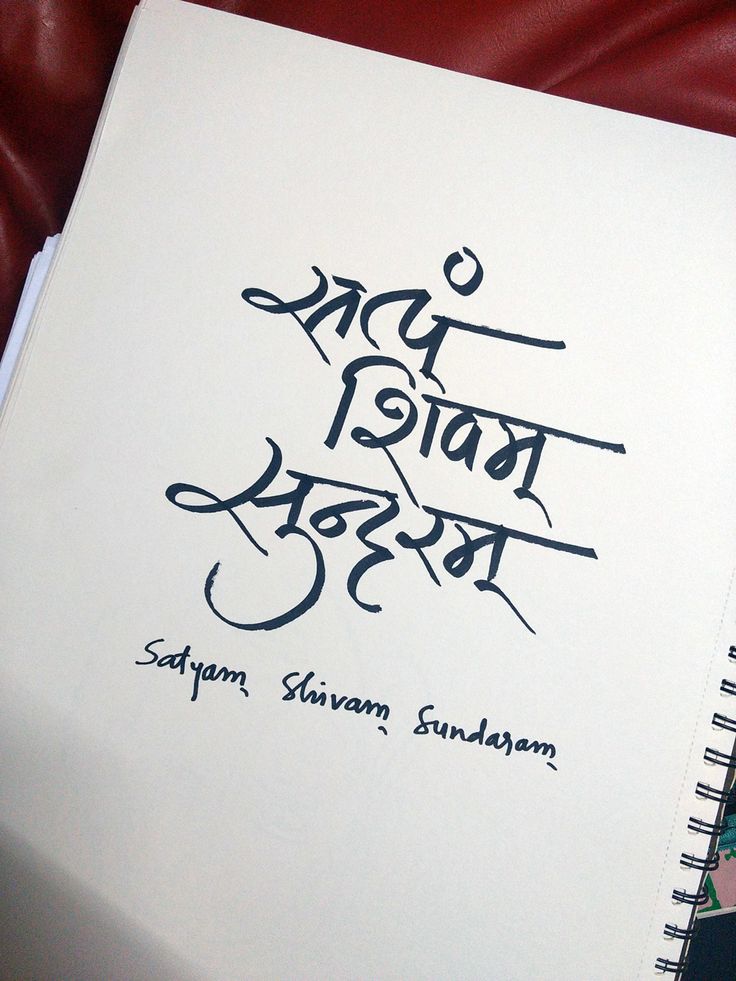 सत्यं
शिवम्
सुन्दरम्
Satyam Shivam Sundaram